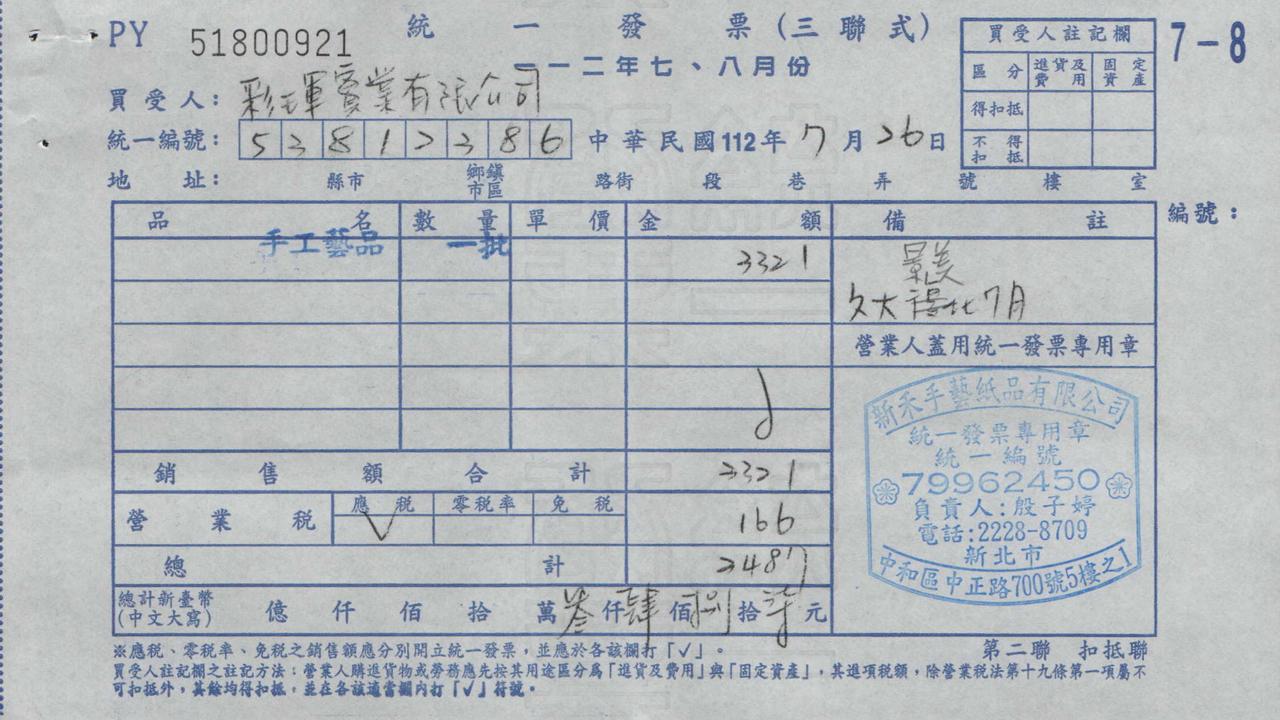 PY 51800921 統一發票(三聯式) 7-8
一一二年七、八月份
買受人: 彩琿實業有限公司
統一編號: 53812386 中華民國112年7月26日
地址: 縣市 鄉鎮市區 路街 段 巷 弄 號 樓 室
買受人註記欄
區分 進貨及費用 固定資產
得扣抵
不得扣抵
編號:
品名 數量 單價 金額 備註
手工藝品 一批 3321 景美
文大 北7月
營業人蓋用統一發票專用章
銷售額合計 3321
營業稅 應稅 零稅率 免稅
✓ 166
總計 3487
總計新臺幣(中文大寫) 億 仟 佰 拾 萬 叁 仟 肆 佰 捌 拾 柒 元
新禾手藝紙品有限公司
統一發票專用章
統一編號
79962450
負責人:殷子婷
電話:2228-8709
新北市
中和區中正路700號5樓之1
※應稅、零稅率、免稅之銷售額應分別開立統一發票,並應於各該欄打「✓」。
第二聯 扣抵聯
買受人註記欄之註記方法:營業人購進貨物或勞務應先按其用途區分為「進貨及費用」與「固定資產」,其進項稅額,除營業稅法第十九條第一項屬不
可扣抵外,其餘均得扣抵,並在各該適當欄內打「✓」符號。